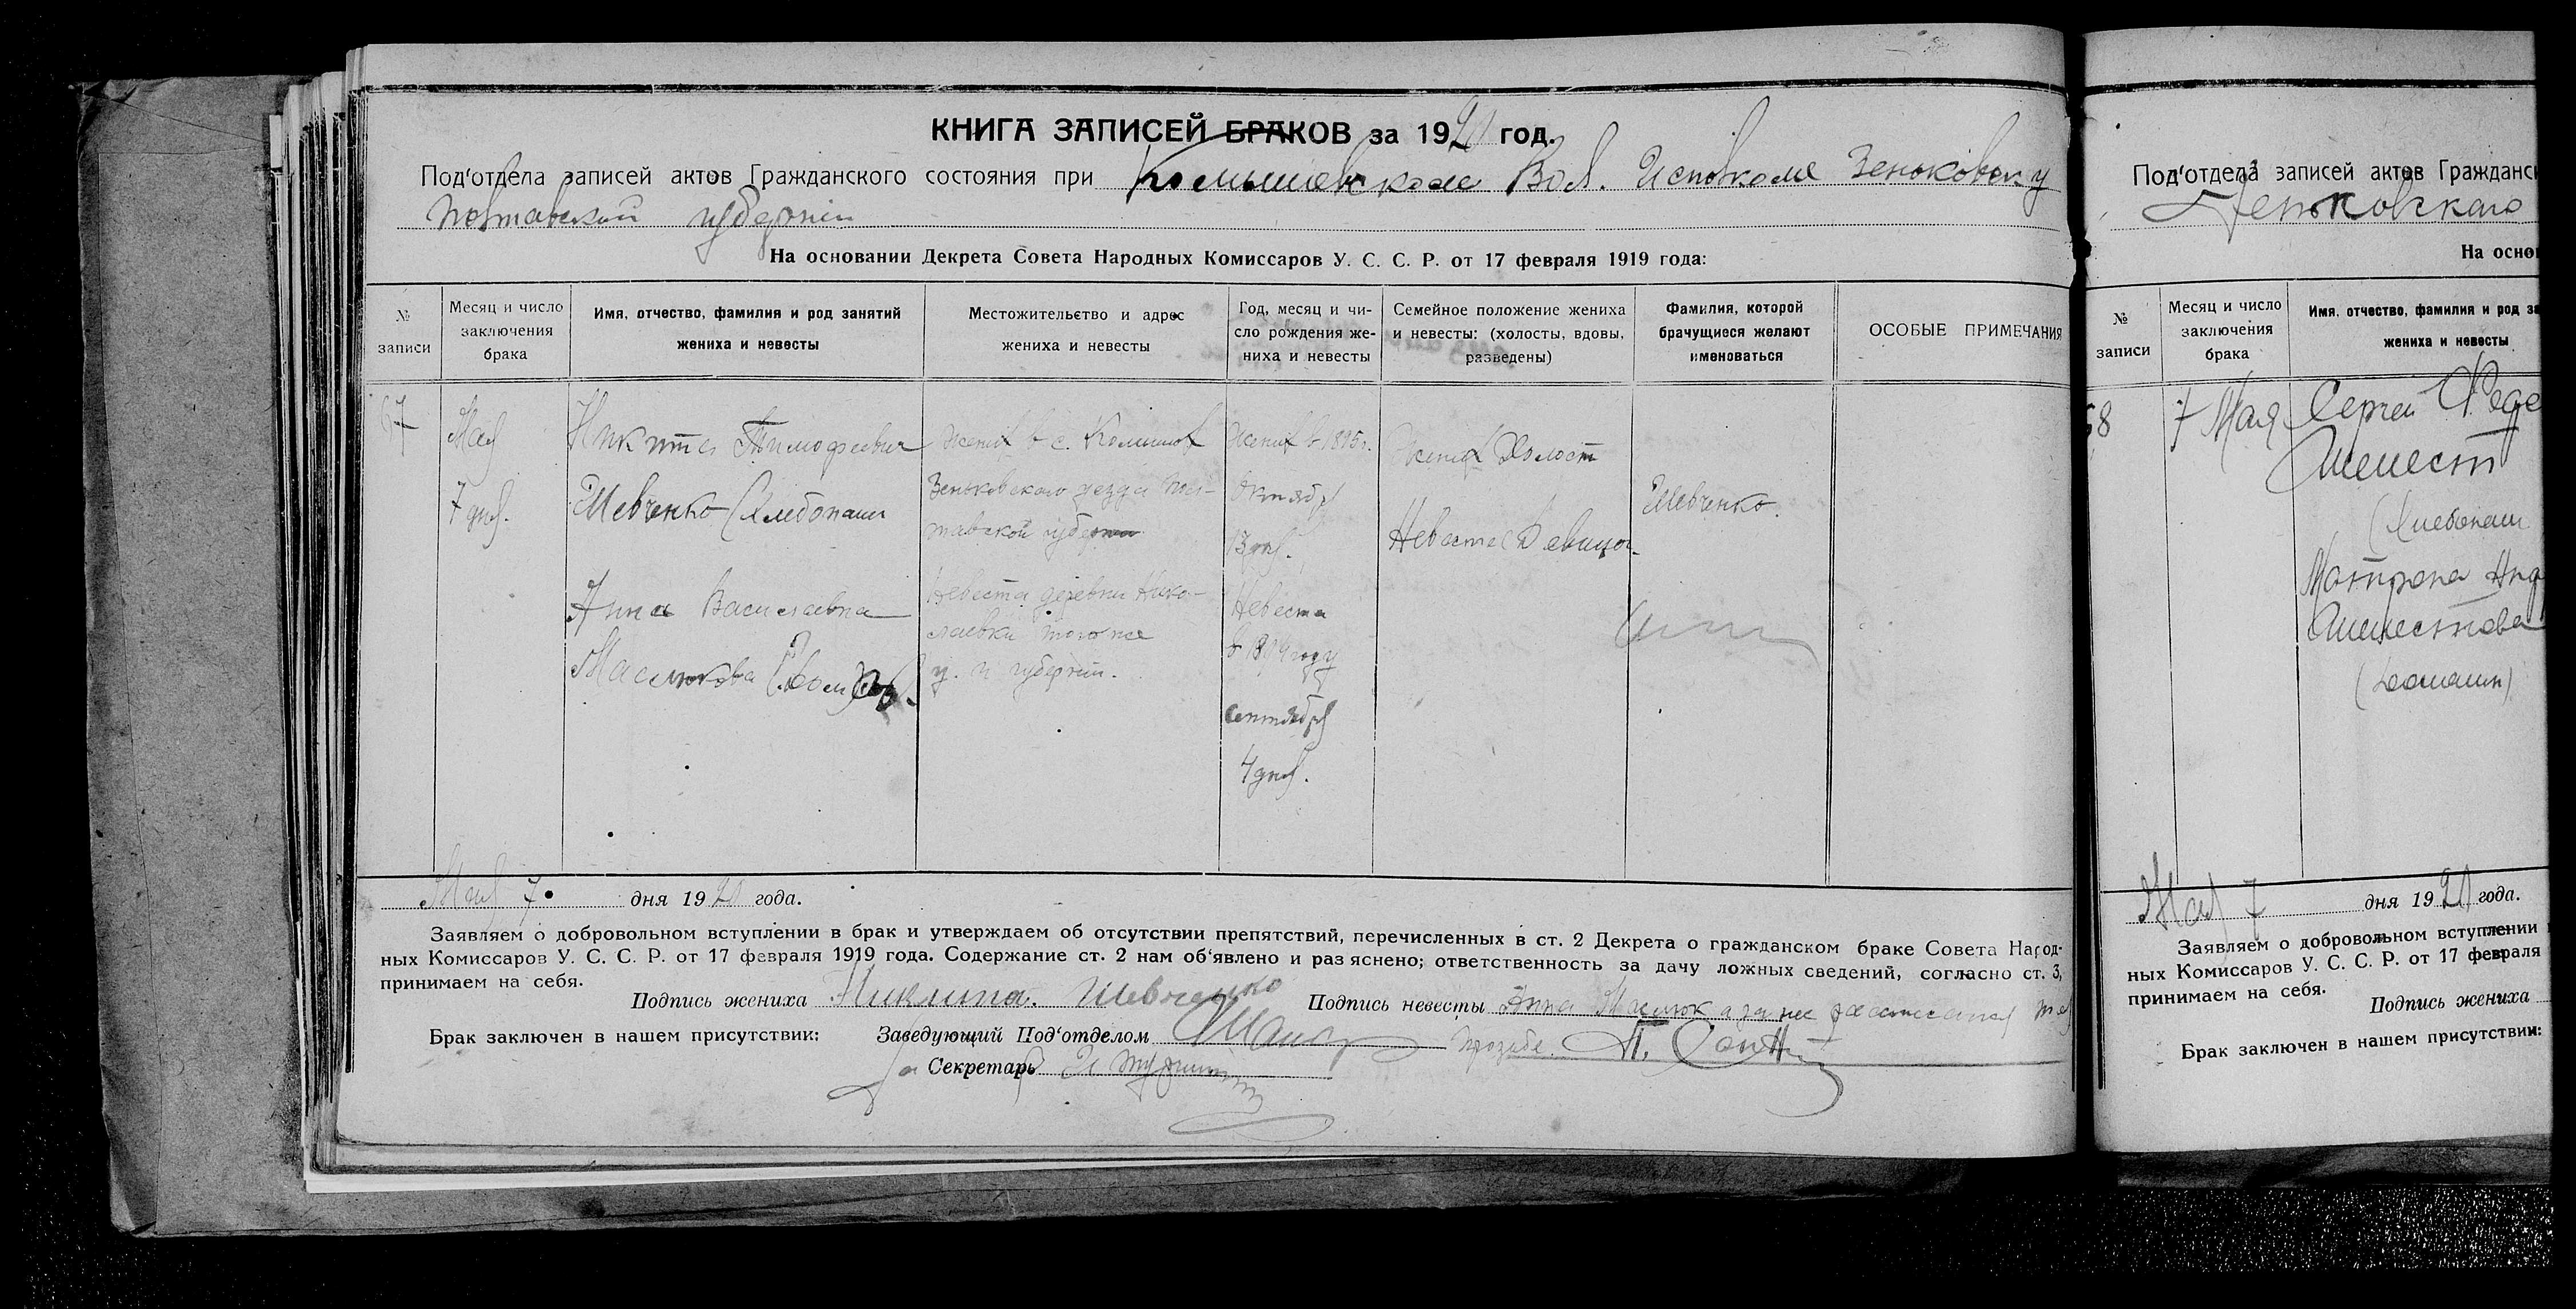 КНИГА ЗАПИСЕЙ БРАКОВ за 1921 год.
Под'отдела записей актов Гражданского состояния при Комышевском Вол. Исполкоме Зеньковск у
Полтавской губернии
На основании Декрета Совета Народных Комиссаров У. С. С. Р. от 17 февраля 1919 года:
№ записи
Месяц и число заключения брака
Имя, отчество, фамилия и род занятий жениха и невесты
Местожительство и адрес жениха и невесты
Год, месяц и число рождения жениха и невесты
Семейное положение жениха и невесты: (холосты, вдовы, разведены)
Фамилия, которой брачущиеся желают именоваться
ОСОБЫЕ ПРИМЕЧАНИЯ
67
Мая
7 дня.
Никита Тимофеевич
Шевченко (Хлебопаш
Анна Василевна
Маслюкова
Жених в с. Комышах
Зеньковского уезда Пол-
тавской губернии
Невеста деревни Нико-
лаевки того же
у. и губернии.
Жених в 1895 г.
Октября
13 дня.
Невеста
году
сентября
4 дня.
Жених Холост
Невеста Девица.
Шевченко.
Мая 7 дня 1921 года.
Заявляем о добровольном вступлении в брак и утверждаем об отсутствии препятствий, перечисленных в ст. 2 Декрета о гражданском браке Совета Народ-
ных Комиссаров У. С. С. Р. от 17 февраля 1919 года. Содержание ст. 2 нам об'явлено и раз яснено; ответственность за дачу ложных сведений, согласно ст. 3,
принимаем на себя.
Подпись жениха Никита Шевченко Подпись невесты Анна Маслюк а за нее росписался
Брак заключен в нашем присутствии: Заведующий Под'отделом
прозьбе
Секретарь
Под'отдела записей актов Гражданск
Зеньковского
На осно
№ записи
Месяц и число заключения брака
Имя, отчество, фамилия и род за
жениха и невесты
68
7 Мая
Сергей Феде
Шелест
(Хлебопаш
Матрона Анд
Шелестова
Мая 7 дня 1921 года.
Заявляем о добровольном вступлении
ных Комиссаров У. С. С. Р. от 17 февраля
принимаем на себя.
Подпись жениха
Брак заключен в нашем присутствии: